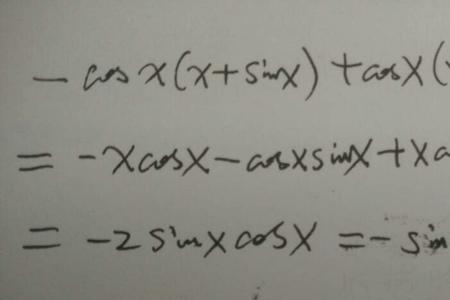 - cos x(x+sinx) + cosx(
= -xcosx - cosxsinx + x
= -2 sinx cosx = - sin